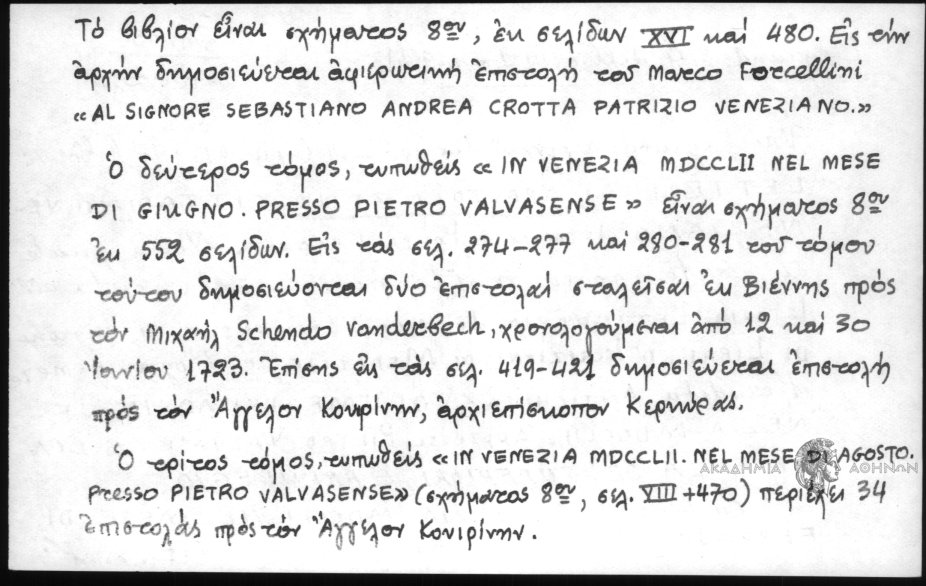 Τὸ βιβλίον εἶναι σχήματος 8ου, ἐκ σελίδων XVI καὶ 480. Εἰς τὴν
ἀρχὴν δημοσιεύεται ἀφιερωτικὴ ἐπιστολὴ τοῦ Marco Forcellini
«AL SIGNORE SEBASTIANO ANDREA CROTTA PATRIZIO VENEZIANO.»
Ὁ δεύτερος τόμος, τυπωθεὶς «IN VENEZIA MDCCLII NEL MESE
DI GIUGNO. PRESSO PIETRO VALVASENSE» εἶναι σχήματος 8ου
ἐκ 552 σελίδων. Εἰς τὰς σελ. 274-277 καὶ 280-281 τοῦ τόμου
τούτου δημοσιεύονται δύο ἐπιστολαὶ σταλεῖσαι ἐκ Βιέννης πρὸς
τὸν Μιχαὴλ Schendo Vanderbech, χρονολογούμεναι ἀπὸ 12 καὶ 30
Ἰουνίου 1723. Ἐπίσης εἰς τὰς σελ. 419-421 δημοσιεύεται ἐπιστολὴ
πρὸς τὸν Ἄγγελον Κουιρίνην, ἀρχιεπίσκοπον Κερκύρας.
Ὁ τρίτος τόμος, τυπωθεὶς «IN VENEZIA MDCCLII. NEL MESE DI AGOSTO.
Presso PIETRO VALVASENSE» (σχήματος 8ου, σελ. VIII+470) περιέχει 34
ἐπιστολὰς πρὸς τὸν Ἄγγελον Κουιρίνην.
ΑΚΑΔΗΜΙΑ ΑΘΗΝΩΝ